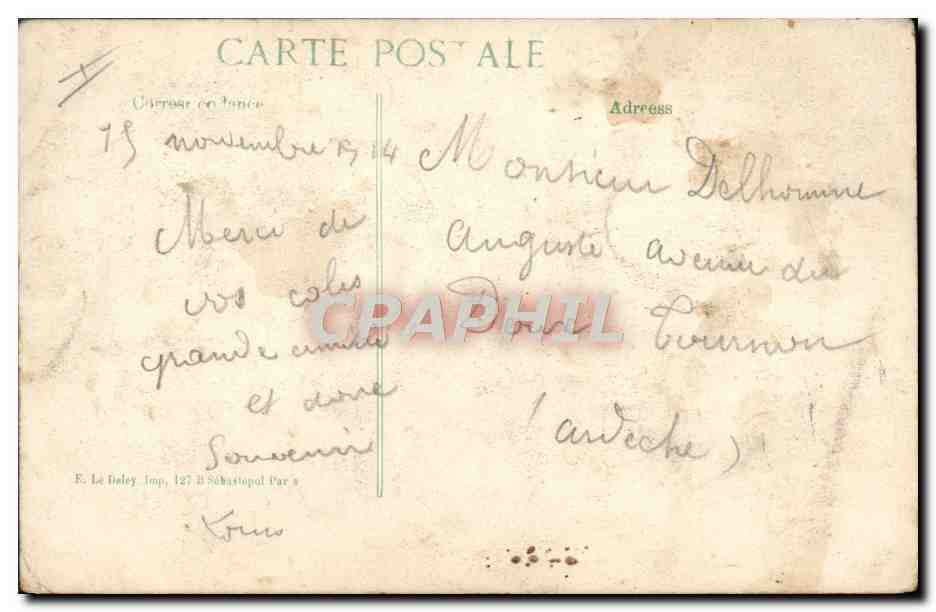 CARTE POSTALE
Correspondance
Adresse
15 novembre 1914
Merci de
vos colis
grande
et
Souvenir
Louis
Monsieur Delhomme
Auguste avenue du
Doux Tournon
(ardèche)
E. Le Deley Imp, 127 B Sébastopol Paris
CPAPHIL